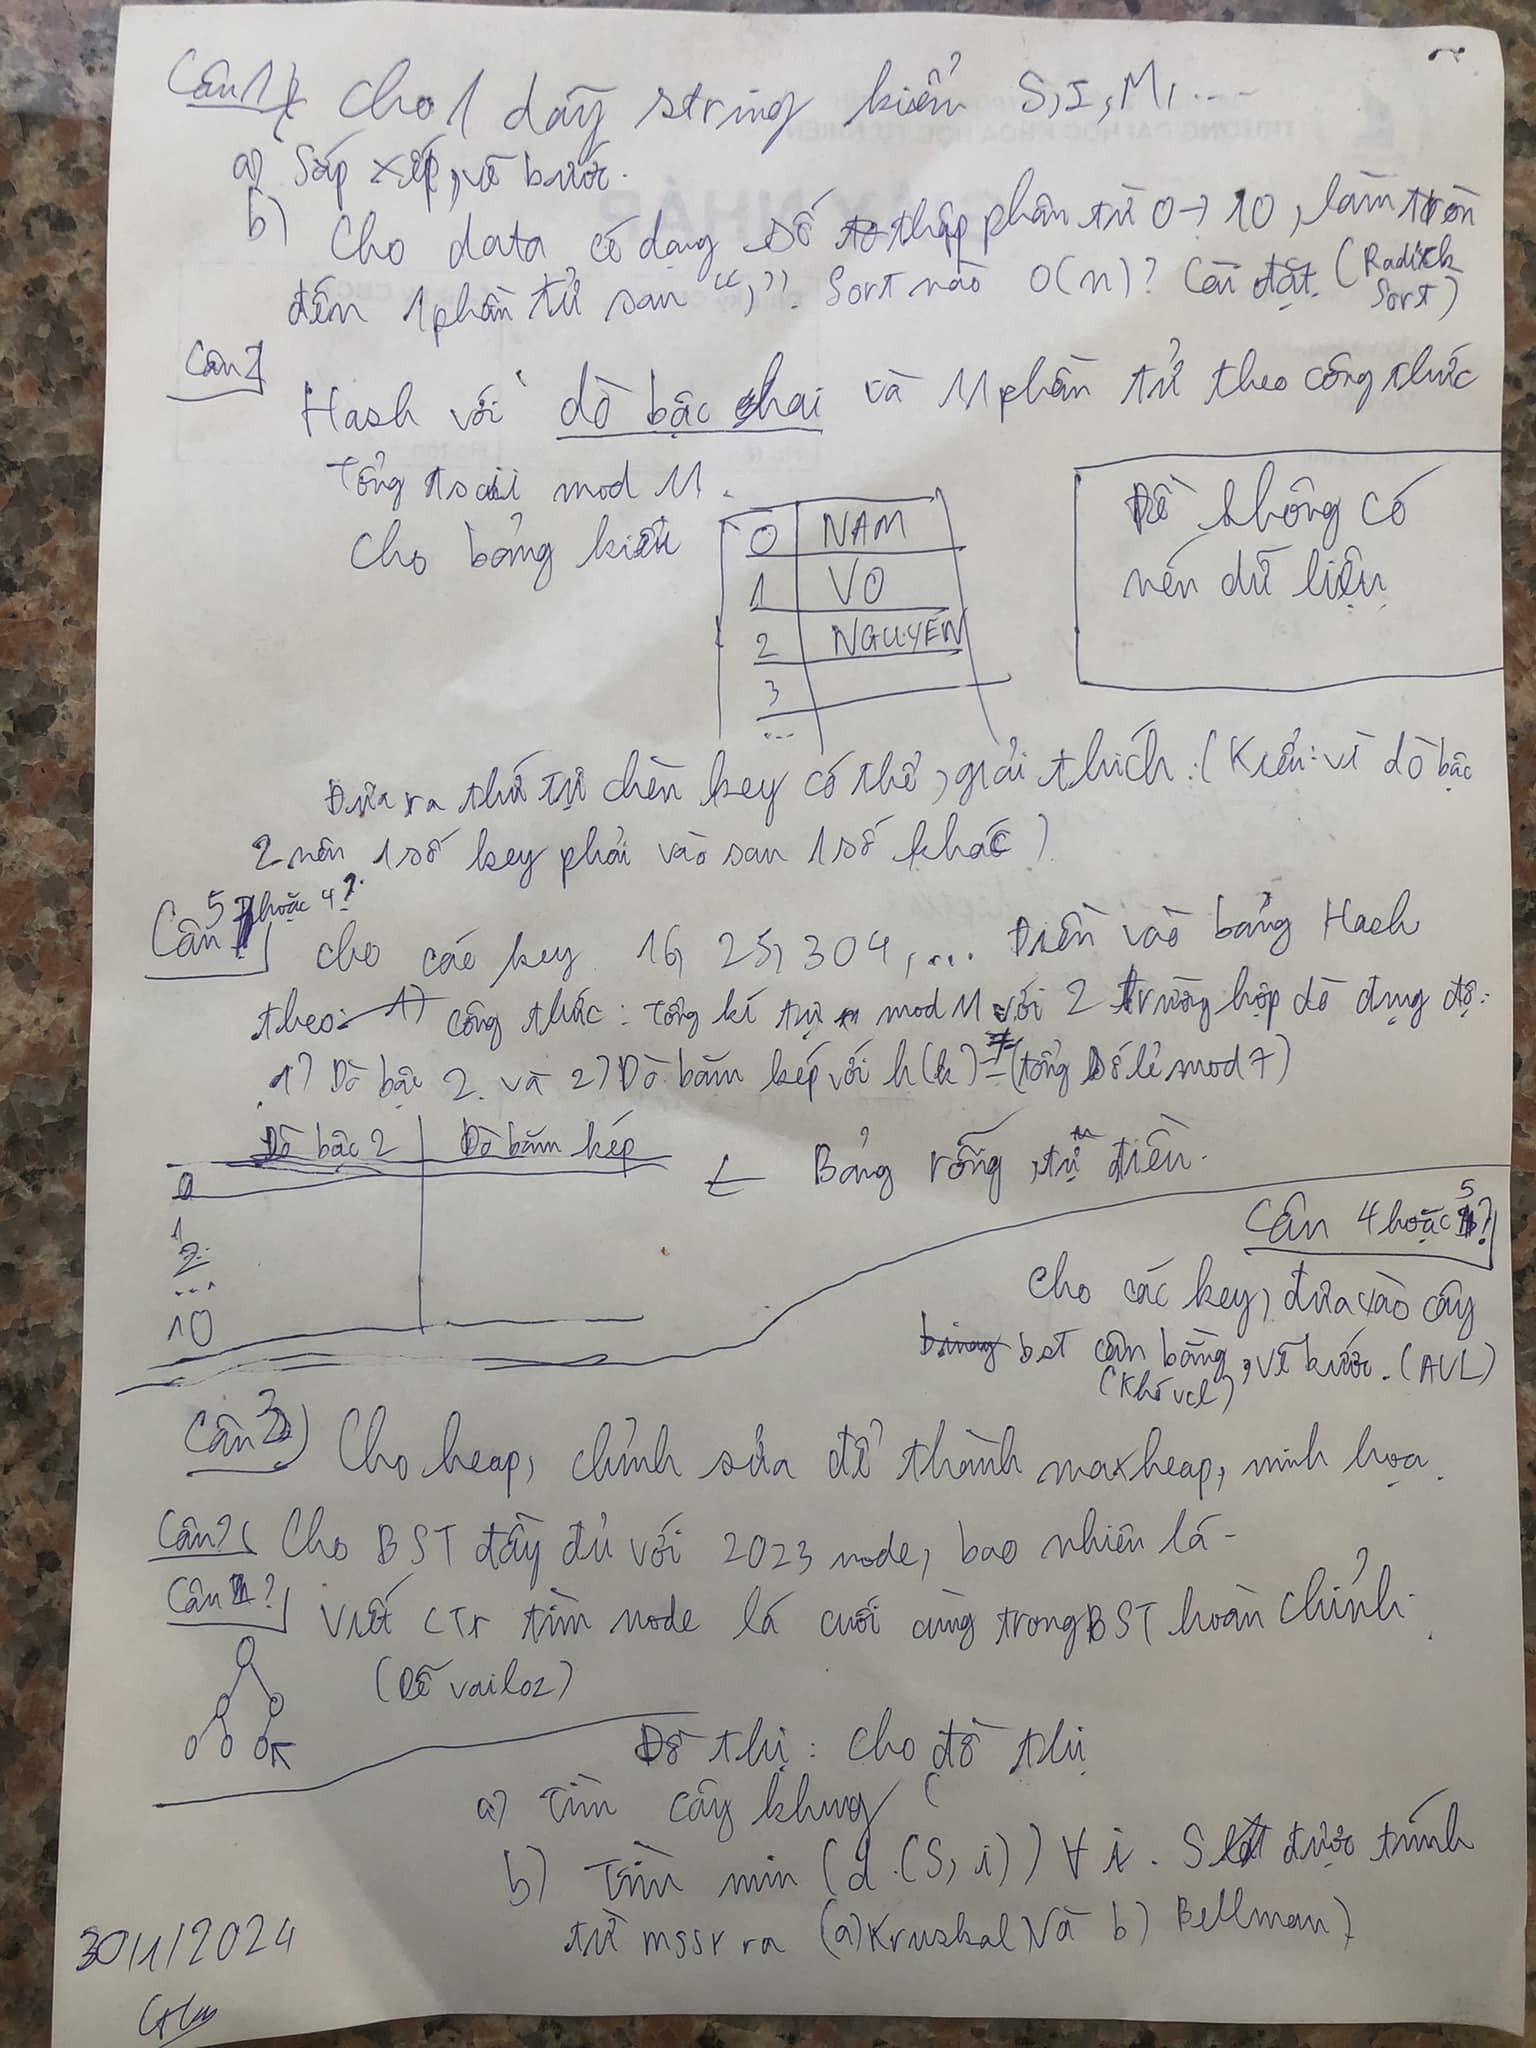 Câu 1) Cho 1 dãy string kiểu S, I, M, ...
a) Sắp xếp, vẽ bước.
b) Cho data có dạng số thập phân từ 0 → 10, làm tròn
đến 1 phần tử sau ",". Sort nào O(n)? Cài đặt. (Radixk
Sort)
Câu 2
Hash với dò bậc hai và 11 phần tử theo công thức
Tổng Ascii mod 11.
Cho bảng kiểu
0 NAM
1 VO
2 NGUYEN
3
...
Đề không có
nén dữ liệu
Đưa ra thứ tự chèn key có thể, giải thích. (Kiểu: vì dò bậc
2 nên 1 số key phải vào sau 1 số khác)
Câu 5 hoặc 4?
Cho các key 16, 25, 304, ... Điền vào bảng Hash
theo: 1) công thức: Tổng kí tự mod 11 với 2 trường hợp dò đụng độ:
1) Dò bậc 2. và 2) Dò băm kép với h(k) = (tổng số lẻ mod 7)
Dò bậc 2 Dò băm kép
← Bảng rỗng, tự điền.
0
1
2
...
10
Câu 4 hoặc 5?
Cho các key, đưa vào cây
bst cân bằng, vẽ bước. (AVL)
(Khó vcl)
Câu 3) Cho heap, chỉnh sửa để thành maxheap, minh họa.
Câu ?( Cho BST đầy đủ với 2023 node, bao nhiên lá -
Câu ?
Viết CTr tìm node lá cuối cùng trong BST hoàn chỉnh.
(Dễ vailoz)
Đồ thị: Cho đồ thị
a) Tìm cây khung
b) Tìm min (d.(S, i)) ∀ i. S được tính
từ mssv ra (a) Kruskal Và b) Bellman)
30/1/2024